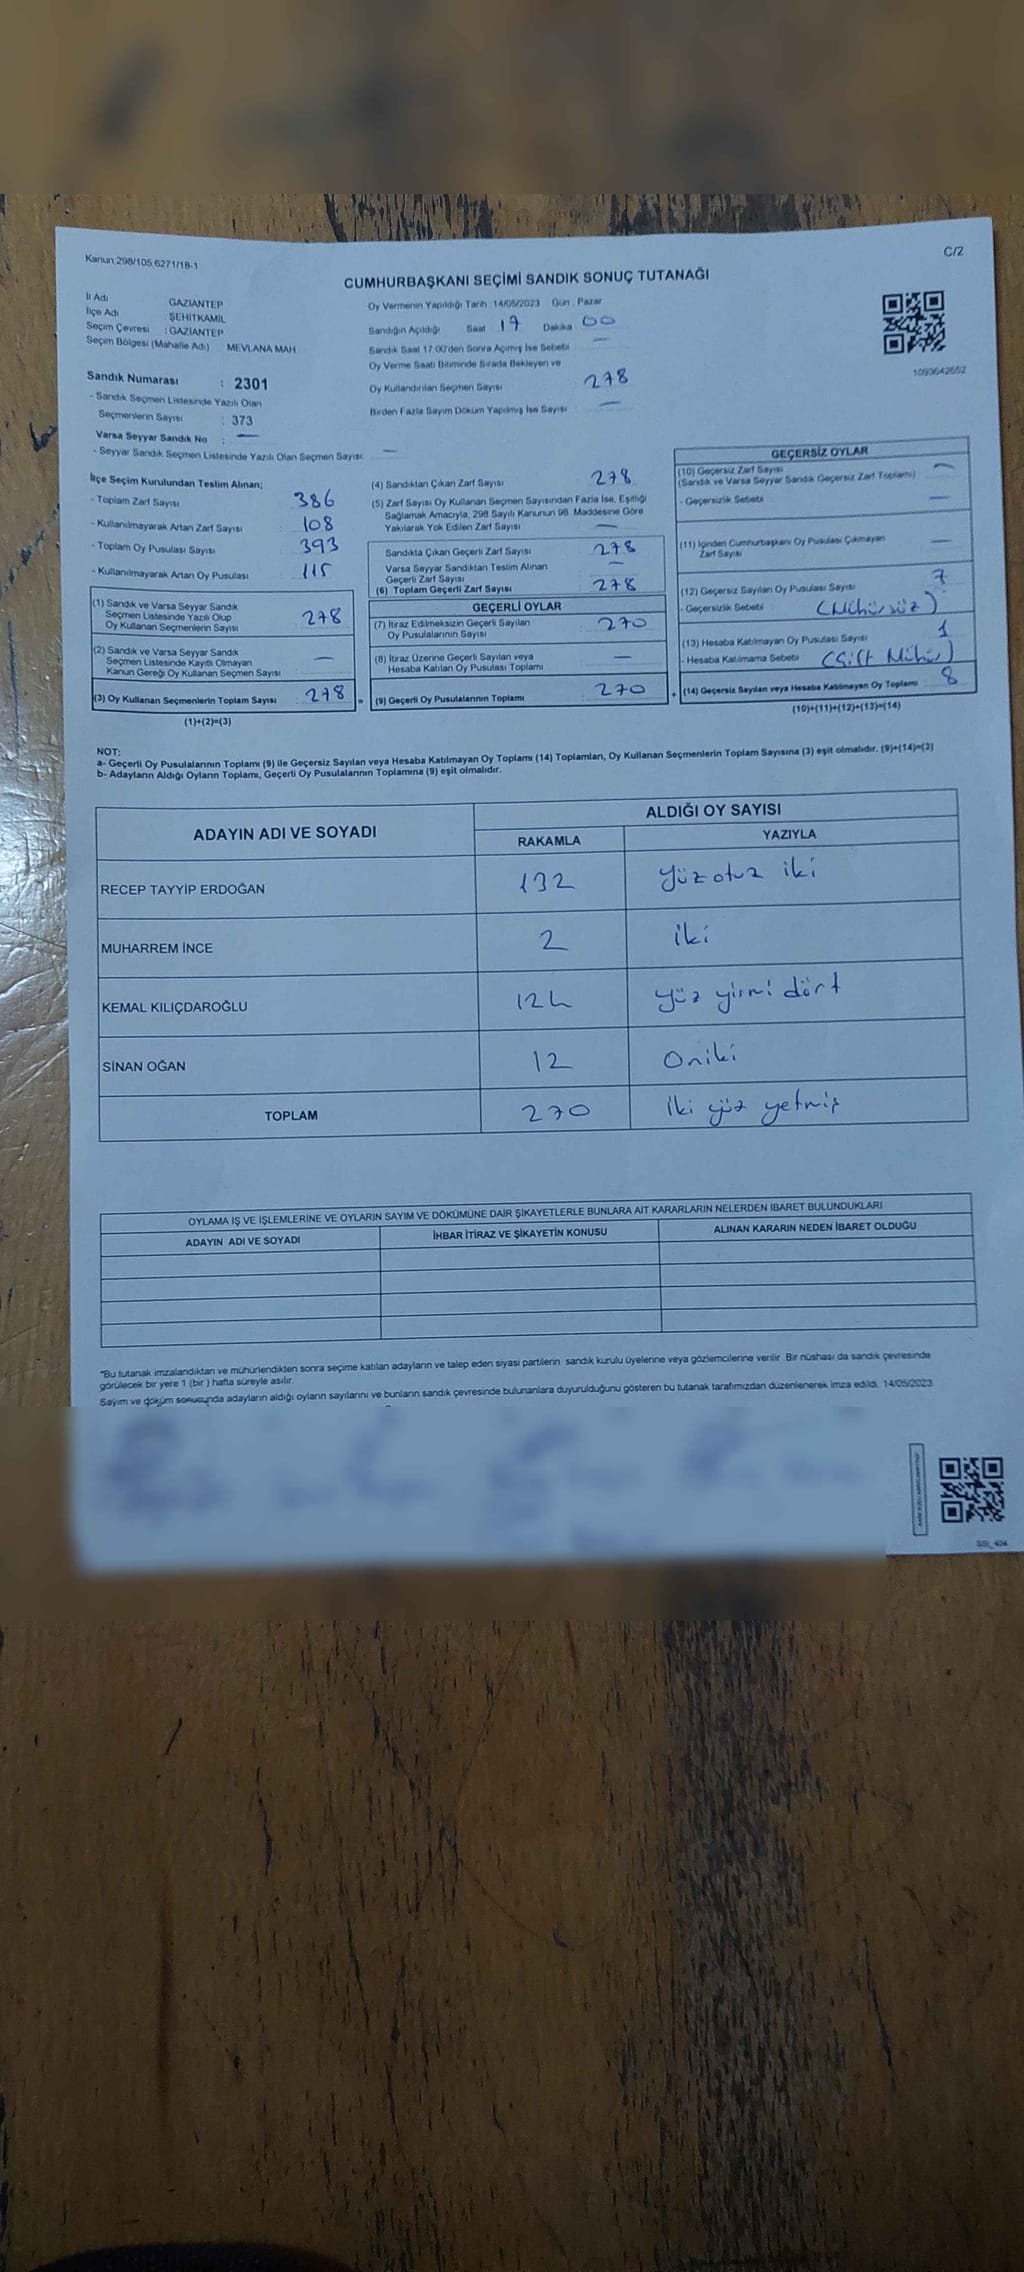 Kanun 298/105,6271/18-1
C/2
CUMHURBAŞKANI SEÇİMİ SANDIK SONUÇ TUTANAĞI
İl Adı GAZİANTEP
İlçe Adı ŞEHİTKAMİL
Seçim Çevresi : GAZİANTEP
Seçim Bölgesi (Mahalle Adı) MEVLANA MAH
Sandık Numarası : 2301
- Sandık Seçmen Listesinde Yazılı Olan
Seçmenlerin Sayısı : 373
Varsa Seyyar Sandık No : —
- Seyyar Sandık Seçmen Listesinde Yazılı Olan Seçmen Sayısı —
Oy Vermenin Yapıldığı Tarih 14/05/2023 Gün : Pazar
Sandığın Açıldığı Saat 17 Dakika 00
Sandık Saat 17.00'den Sonra Açılmış İse Sebebi —
Oy Verme Saati Bitiminde Sırada Bekleyen ve
Oy Kullandırılan Seçmen Sayısı 278
Birden Fazla Sayım Döküm Yapılmış İse Sayısı —
1093642652
İlçe Seçim Kurulundan Teslim Alınan;
- Toplam Zarf Sayısı 386
- Kullanılmayarak Artan Zarf Sayısı 108
- Toplam Oy Pusulası Sayısı 393
- Kullanılmayarak Artan Oy Pusulası 115
(1) Sandık ve Varsa Seyyar Sandık
Seçmen Listesinde Yazılı Olup
Oy Kullanan Seçmenlerin Sayısı 278
(2) Sandık ve Varsa Seyyar Sandık
Seçmen Listesinde Kayıtlı Olmayan
Kanun Gereği Oy Kullanan Seçmen Sayısı —
(3) Oy Kullanan Seçmenlerin Toplam Sayısı : 278
(1)+(2)=(3)
(4) Sandıktan Çıkan Zarf Sayısı 278
(5) Zarf Sayısı Oy Kullanan Seçmen Sayısından Fazla İse, Eşitliği
Sağlamak Amacıyla, 298 Sayılı Kanunun 98. Maddesine Göre
Yakılarak Yok Edilen Zarf Sayısı —
Sandıkta Çıkan Geçerli Zarf Sayısı 278
Varsa Seyyar Sandıktan Teslim Alınan
Geçerli Zarf Sayısı —
(6) Toplam Geçerli Zarf Sayısı 278
GEÇERLİ OYLAR
(7) İtiraz Edilmeksizin Geçerli Sayılan
Oy Pusulalarının Sayısı 270
(8) İtiraz Üzerine Geçerli Sayılan veya
Hesaba Katılan Oy Pusulası Toplamı —
(9) Geçerli Oy Pusulalarının Toplamı 270
GEÇERSİZ OYLAR
(10) Geçersiz Zarf Sayısı —
(Sandık ve Varsa Seyyar Sandık Geçersiz Zarf Toplamı)
- Geçersizlik Sebebi —
(11) İçinden Cumhurbaşkanı Oy Pusulası Çıkmayan
Zarf Sayısı —
(12) Geçersiz Sayılan Oy Pusulası Sayısı 7
- Geçersizlik Sebebi (Mühürsüz)
(13) Hesaba Katılmayan Oy Pusulası Sayısı 1
- Hesaba Katılmama Sebebi (Çift Mühür)
(14) Geçersiz Sayılan veya Hesaba Katılmayan Oy Toplamı 8
(10)+(11)+(12)+(13)=(14)
NOT:
a- Geçerli Oy Pusulalarının Toplamı (9) ile Geçersiz Sayılan veya Hesaba Katılmayan Oy Toplamı (14) Toplamları, Oy Kullanan Seçmenlerin Toplam Sayısına (3) eşit olmalıdır. (9)+(14)=(3)
b- Adayların Aldığı Oyların Toplamı, Geçerli Oy Pusulalarının Toplamına (9) eşit olmalıdır.
ADAYIN ADI VE SOYADI
ALDIĞI OY SAYISI
RAKAMLA YAZIYLA
RECEP TAYYİP ERDOĞAN 132 yüz otuz iki
MUHARREM İNCE 2 iki
KEMAL KILIÇDAROĞLU 124 yüz yirmi dört
SİNAN OĞAN 12 Oniki
TOPLAM 270 İki yüz yetmiş
OYLAMA İŞ VE İŞLEMLERİNE VE OYLARIN SAYIM VE DÖKÜMÜNE DAİR ŞİKAYETLERLE BUNLARA AİT KARARLARIN NELERDEN İBARET BULUNDUKLARI
ADAYIN ADI VE SOYADI İHBAR İTİRAZ VE ŞİKAYETİN KONUSU ALINAN KARARIN NEDEN İBARET OLDUĞU
*Bu tutanak imzalandıktan ve mühürlendikten sonra seçime katılan adayların ve talep eden siyasi partilerin sandık kurulu üyelerine veya gözlemcilerine verilir. Bir nüshası da sandık çevresinde
görülecek bir yere 1 (bir ) hafta süreyle asılır.
Sayım ve döküm sonucunda adayların aldığı oyların sayılarını ve bunların sandık çevresinde bulunanlara duyurulduğunu gösteren bu tutanak tarafımızdan düzenlenerek imza edildi. 14/05/2023